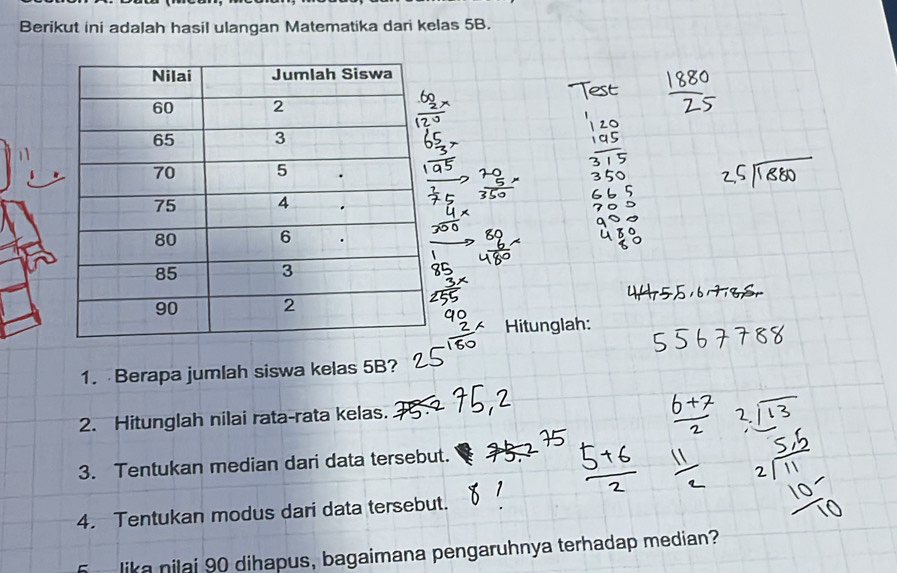 Berikut ini adalah hasil ulangan Matematika dari kelas 5B.
Nilai Jumlah Siswa
60 2
65 3
70 5
75 4
80 6
85 3
90 2
60
2 x
120
65
3 x
195
70
5 x
350
75
4 x
300
80
6 x
480
85
3 x
255
90
2 x
180
Test 1880
25
120
195
315
350
665
300
900
480
80
25 1880
5567788
Hitunglah:
1. Berapa jumlah siswa kelas 5B? 25
2. Hitunglah nilai rata-rata kelas. 75.2 75,2
3. Tentukan median dari data tersebut. 75.2 75
4. Tentukan modus dari data tersebut. 8 !
5+6
2
11
2
6+7
2
2 13
5,5
2 11
10
10
Jika nilai 90 dihapus, bagaimana pengaruhnya terhadap median?